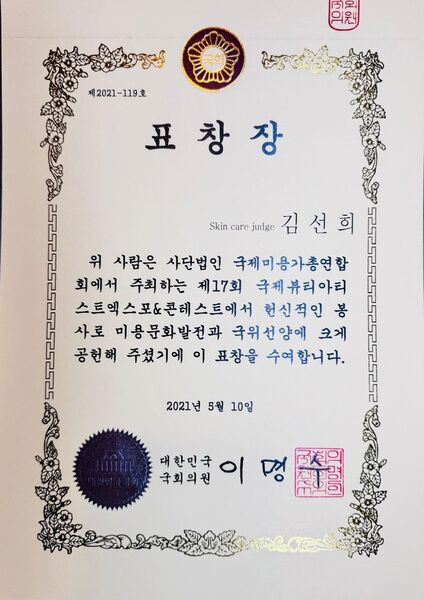 국회
제2021-119호
표창장
Skin care judge 김선희
위 사람은 사단법인 국제미용가총연합
회에서 주최하는 제17회 국제뷰티아티
스트엑스포&콘테스트에서 헌신적인 봉
사로 미용문화발전과 국위선양에 크게
공헌해 주셨기에 이 표창을 수여합니다.
2021년 5월 10일
대한민국
국회의원 이명수
대한민국국회